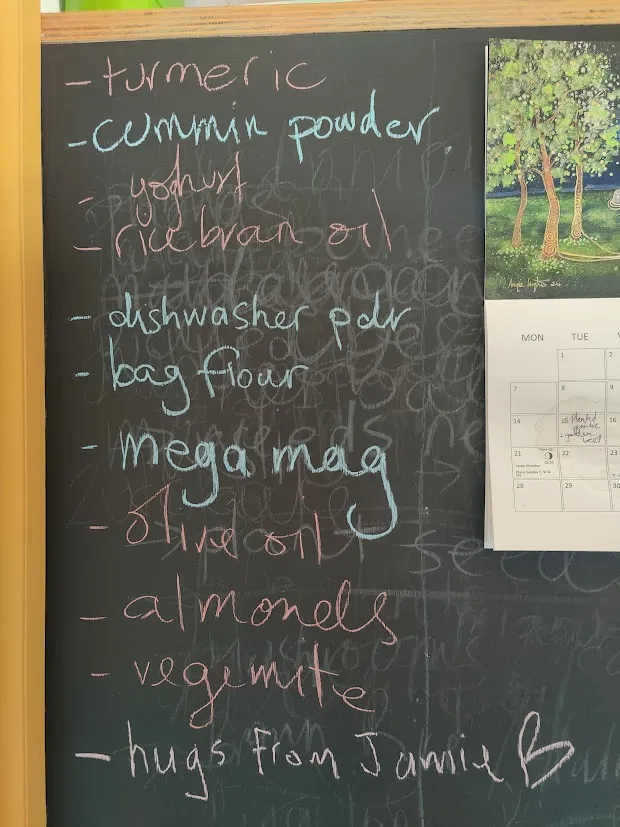 - turmeric
- cummin powder
- yoghurt
- rice bran oil
- dishwasher pdr
- bag flour
- mega mag
- olive oil
- almonds
- vegemite
- hugs From Jamie B
MON TUE
1 2
7 8 9
14 15 Planted garlic 16
21 22 23
28 29 30